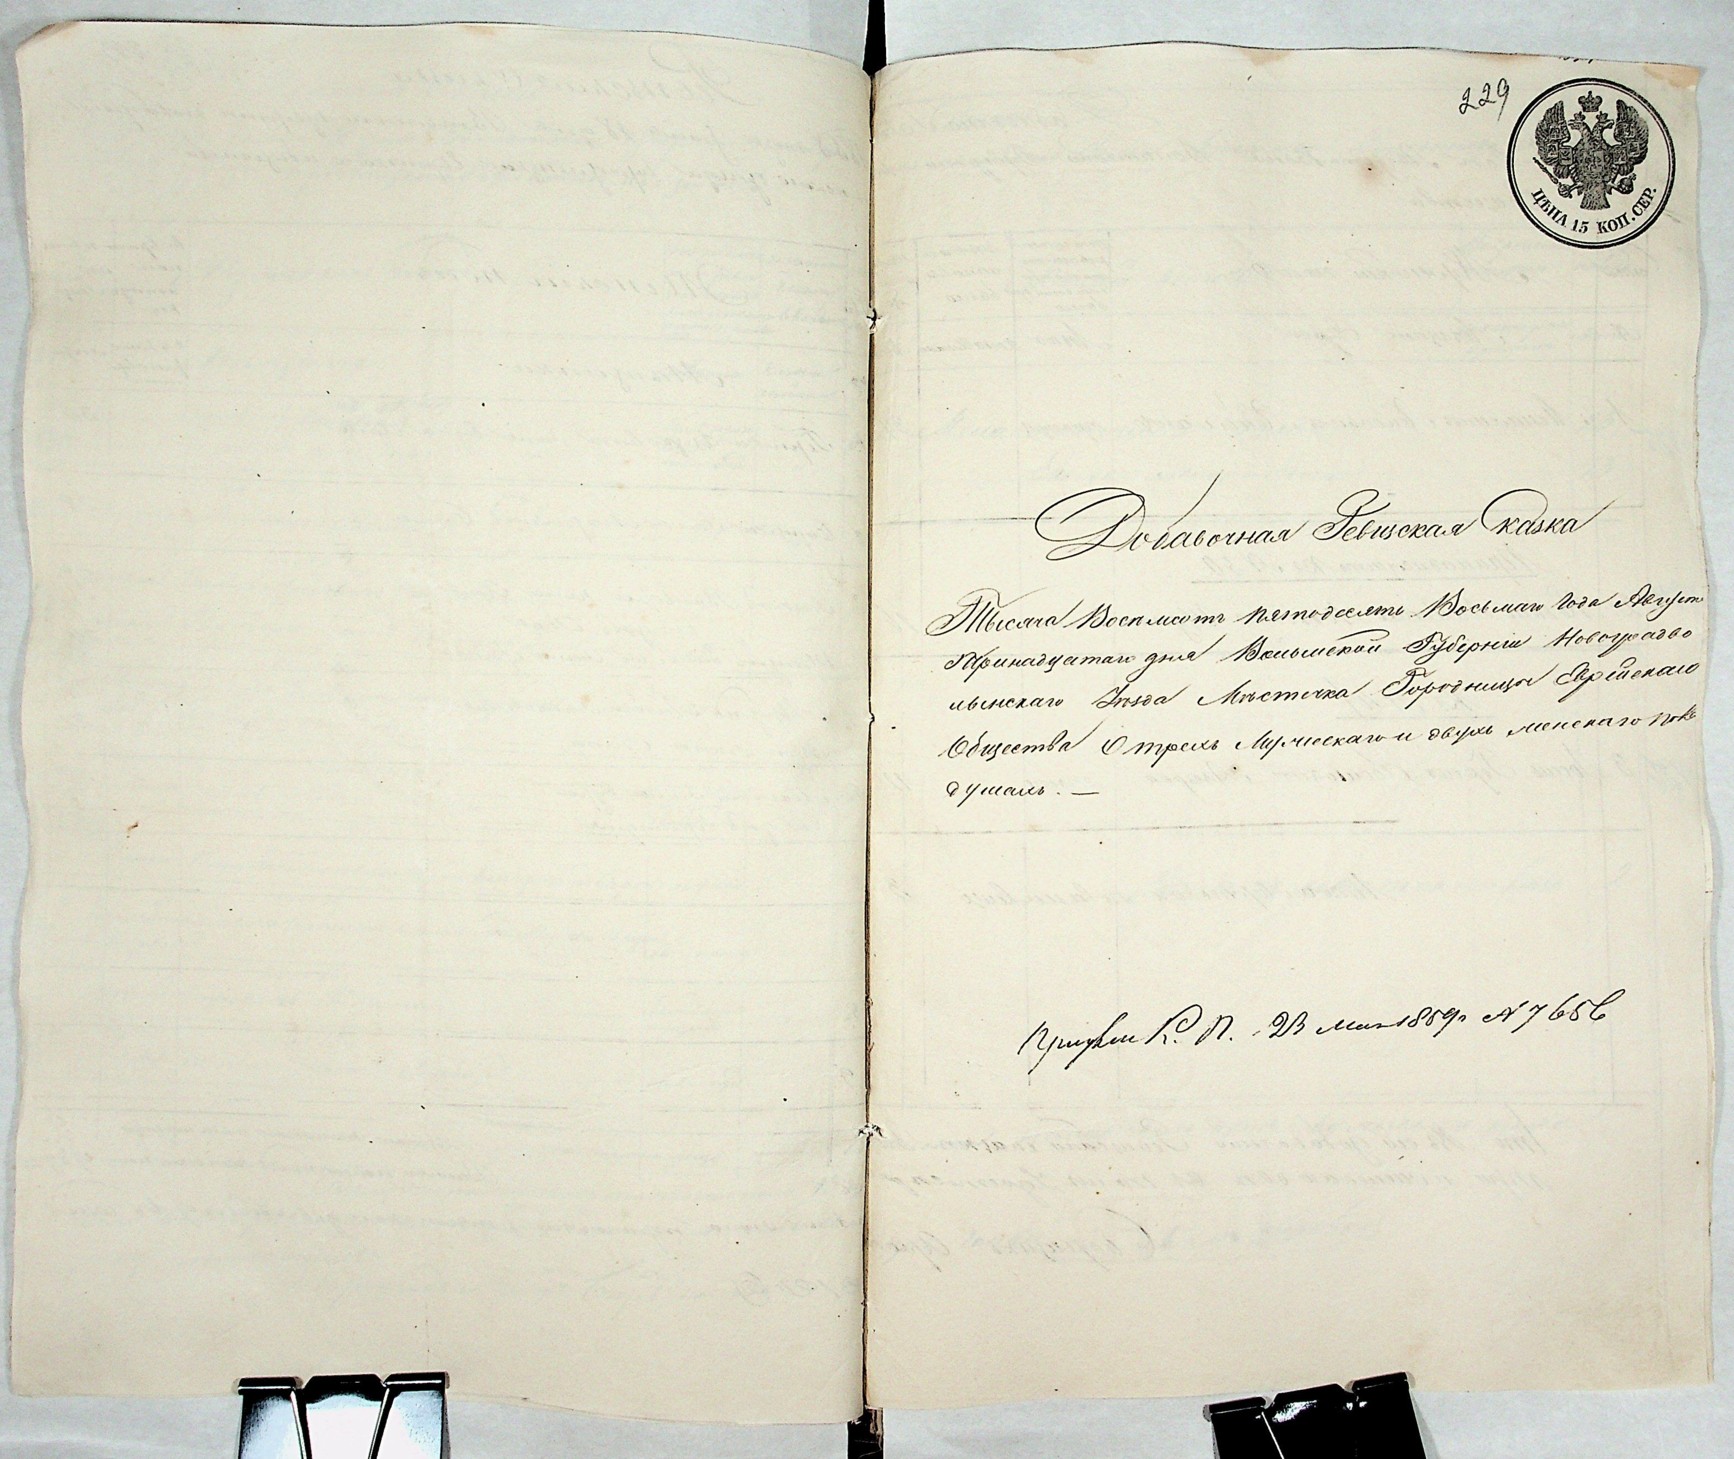 229
ЦѢНА 15 КОП. СЕР.
Добавочная Ревизская Сказка
Тысяча Восемсотъ пятодесять Восьмаго Года Август
Тринадцатаго дня Волынской Губерніи Новоградво
лынскаго Уѣзда Мѣстечка Городницы Еврейскаго
Общества О трехъ Мужескаго и двухъ женскаго пола
душахъ. —
К. П. 23 Мая 1859 г № 7656